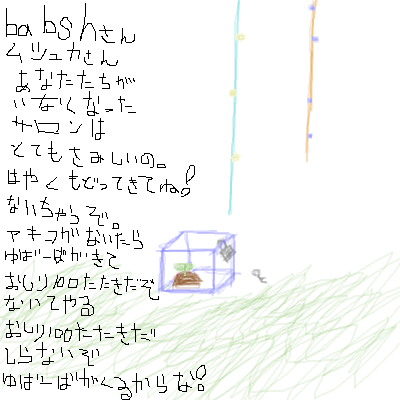 babshさん
ムシュカさん
あなたたちが
いなくなった
サロンは
とてもさみしいの。
はやくもどってきてね!
ないちゃうぞ。
アキコがないたら
ゆばーばがきて
おしり100たたきだぞ
ないてやる
おしり100たたきだ
しらないぞ
ゆばーばがくるからな!